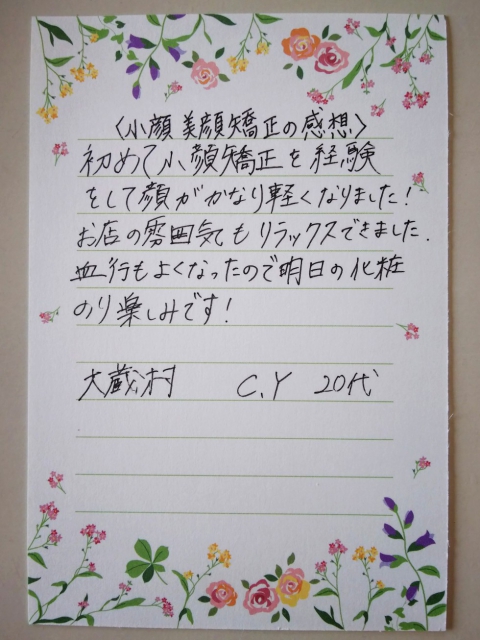 〈小顔美顔矯正の感想〉
初めて小顔矯正を経験
をして顔がかなり軽くなりました!
お店の雰囲気もリラックスできました.
血行もよくなったので明日の化粧
のり楽しみです!
大蔵村 C.Y 20代